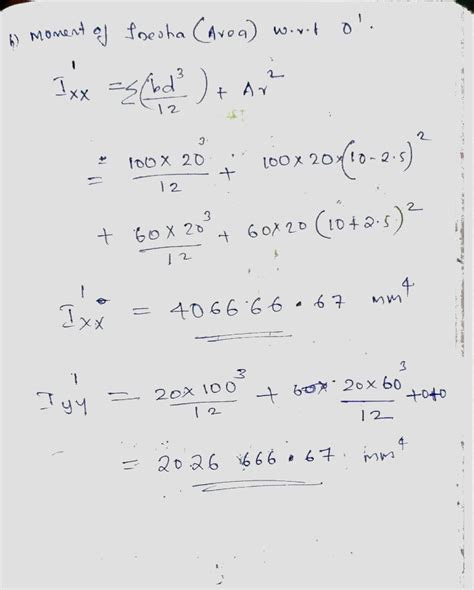 b) Moment of Inesha (Area) w.r.t 0'.
I'xx = Σ(bd³/12) + Ar²
= 100 × 20³/12 + 100×20×(10-2.5)²
+ 60×20³/12 + 60×20 (10+2.5)²
I'xx = 406666.67 mm⁴
I'yy = 20×100³/12 + 20×60³/12 +0+0
= 2026 666.67 mm⁴